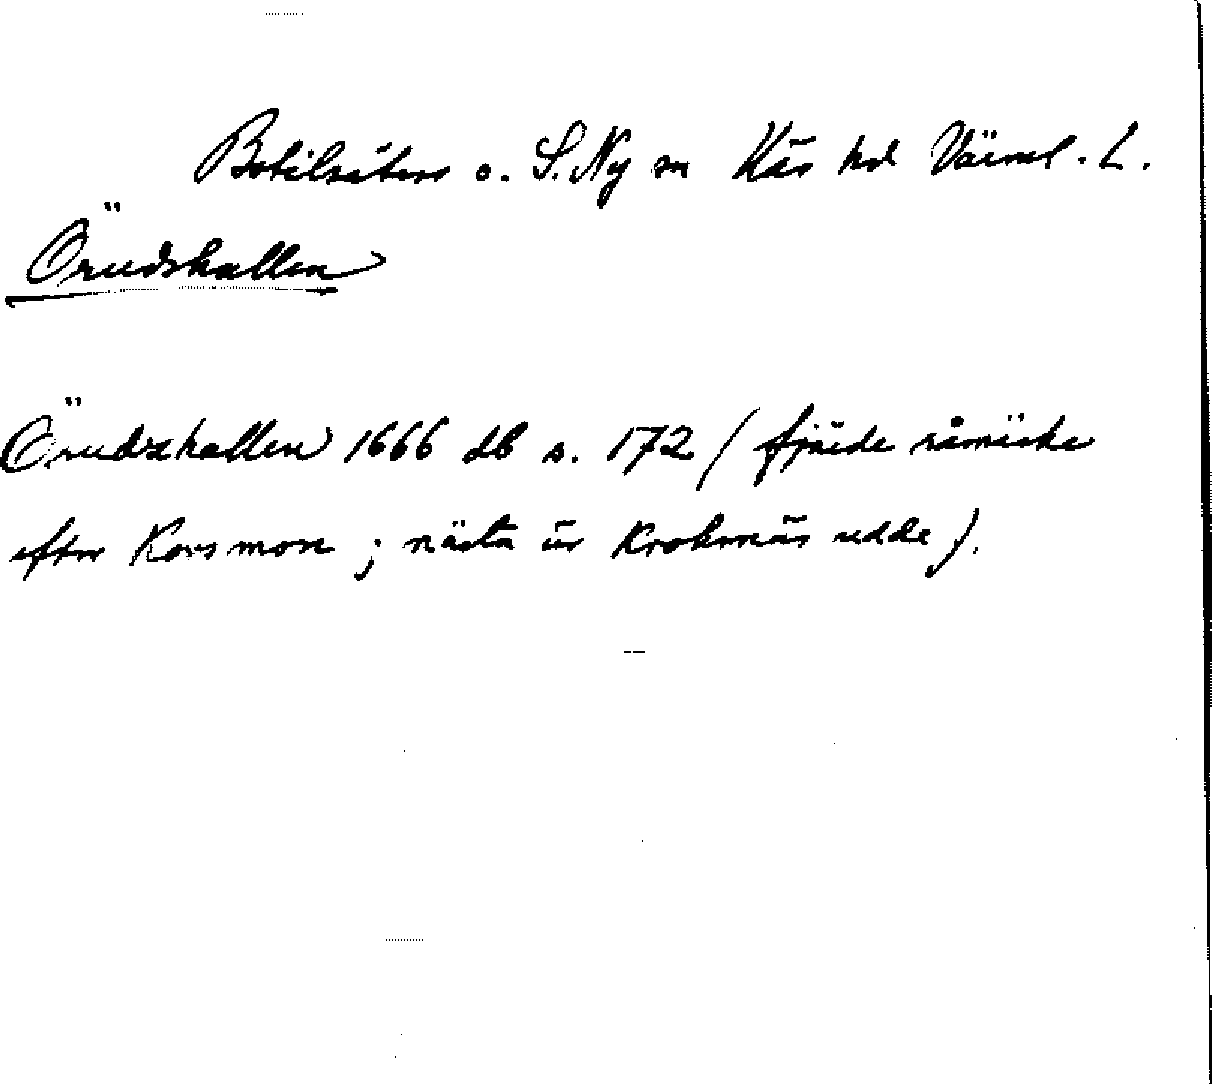 Botilsäters o. S. Ny sn Näs hd Värml. L.
Örudshallen
Örudzhallen 1666 db s. 172 (fjärde råmärke
efter Korsmon ; nästa är Kroknäs udde).